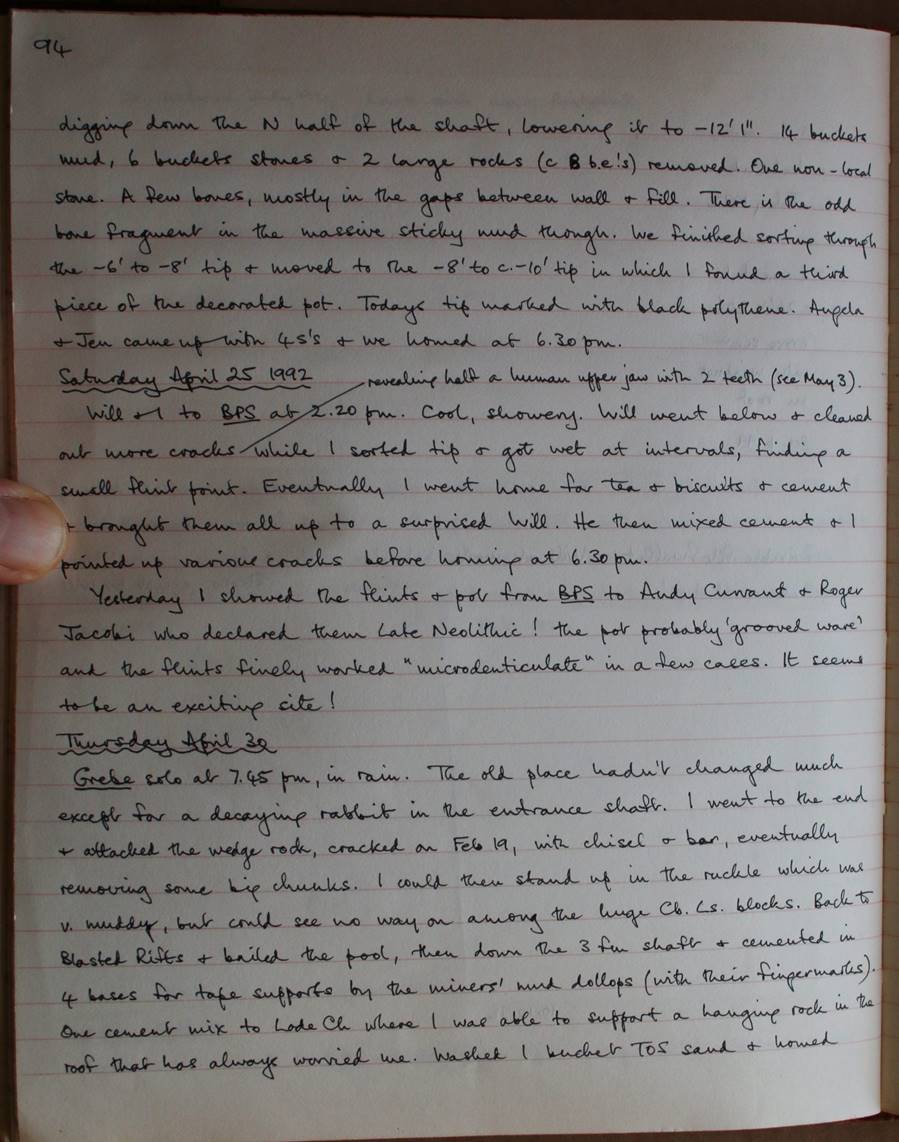 94
digging down the N half of the shaft, lowering it to -12' 1". 14 buckets
mud, 6 buckets stones & 2 large rocks (c 8 b.e.'s) removed. One non-local
stone. A few bones, mostly in the gaps between wall & fill. There is the odd
bone fragment in the massive sticky mud though. We finished sorting through
the -6' to -8' tip & moved to the -8' to c.-10' tip in which I found a third
piece of the decorated pot. Todays tip marked with black polythene. Angela
& Jen came up with 4 s's & we homed at 6.30 pm.
Saturday April 25 1992
revealing half a human upper jaw with 2 teeth (see May 3).
Will & I to BPS at 2.20 pm. Cool, showery. Will went below & cleaned
out more cracks while I sorted tip & got wet at intervals, finding a
small flint point. Eventually I went home for tea & biscuits & cement
& brought them all up to a surprised Will. He then mixed cement & I
pointed up various cracks before homing at 6.30 pm.
Yesterday I showed the flints & pot from BPS to Andy Currant & Roger
Jacobi who declared them Late Neolithic! the pot probably 'grooved ware'
and the flints finely worked "microdenticulate" in a few cases. It seems
to be an exciting site!
Thursday April 30
Grebe solo at 7.45 pm, in rain. The old place hadn't changed much
except for a decaying rabbit in the entrance shaft. I went to the end
& attacked the wedge rock, cracked on Feb 19, with chisel & bar, eventually
removing some big chunks. I could then stand up in the ruckle which was
v. muddy, but could see no way on among the huge Cb. Ls. blocks. Back to
Blasted Rifts & bailed the pool, then down the 3 fm shaft & cemented in
4 bases for tape supports by the miners' mud dollops (with their fingermarks).
One cement mix to Lode Ch where I was able to support a hanging rock in the
roof that has always worried me. Washed 1 bucket TOS sand & homed